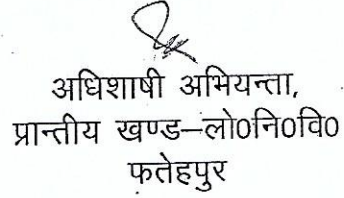 अधिशाषी अभियन्ता,
प्रान्तीय खण्ड–लो0नि0वि0
फतेहपुर